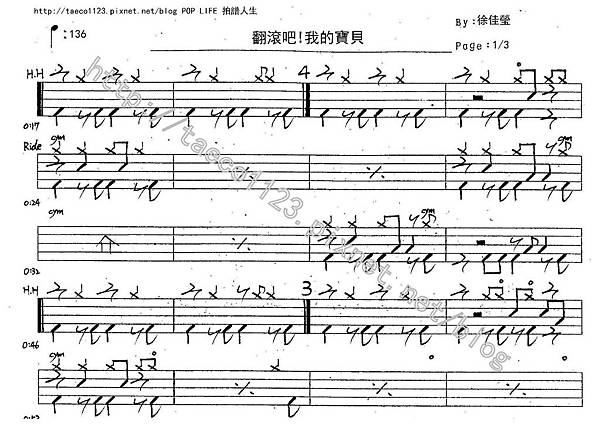 http://taeco1123.pixnet.net/blog POP LIFE 拍譜人生
:136
翻滾吧!我的寶貝
By:徐佳瑩
Page:1/3
H.H
4
0:17
cym
cym
Ride
0:24
cym
cym
0:32
H.H
3
0:46
cym
cym
http://taeco1123.pixnet.net/blog